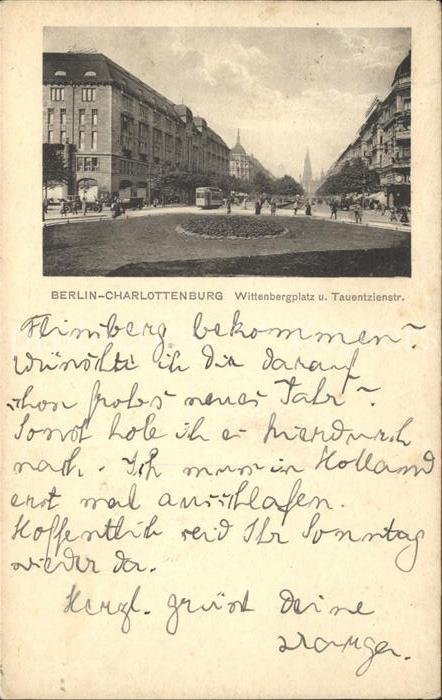 BERLIN-CHARLOTTENBURG Wittenbergplatz u. Tauentzienstr.
Flinsberg bekommen?
Wünschte ich Dir darauf
schon frohes neues Jahr?
Sonst hole ich es hierdurch
nach. Ich muss in Holland
erst mal ausschlafen.
Hoffentlich seid Ihr Sonntag
wieder da.
Herzl. grüsst Deine